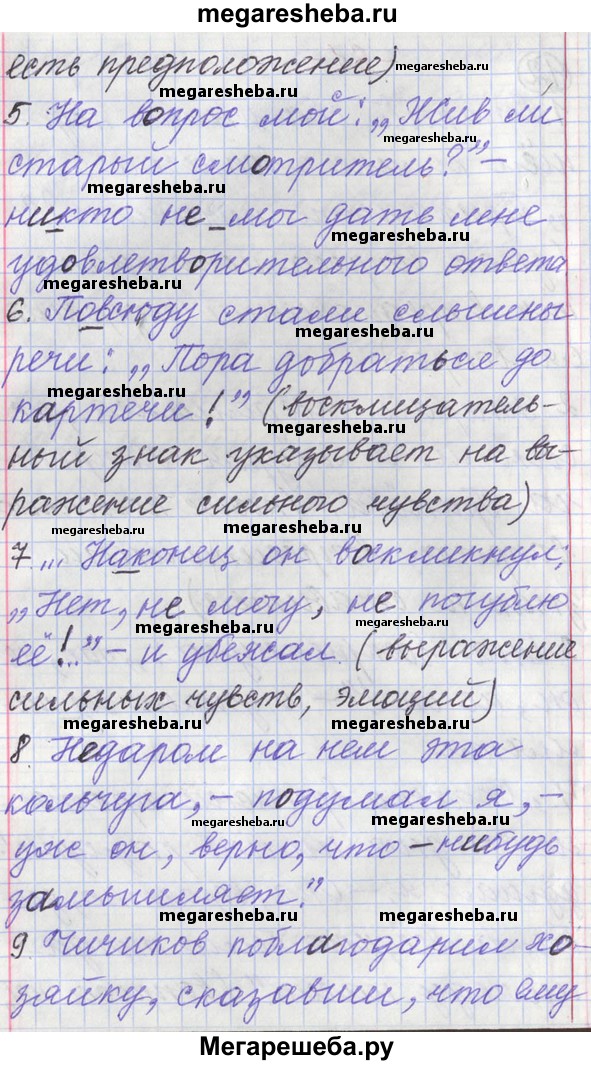 megaresheba.ru
есть предположение)
megaresheba.ru
5. На вопрос мой: „Жив ли
megaresheba.ru
старый смотритель?" –
megaresheba.ru
никто не мог дать мне
удовлетворительного ответа
megaresheba.ru
megaresheba.ru
6. Повсюду стали слышны
megaresheba.ru
речи: „Пора добраться до
megaresheba.ru
картечи!" (восклицатель-
megaresheba.ru
ный знак указывает на вы-
ражение сильного чувства)
megaresheba.ru
megaresheba.ru
7 ... Наконец он воскликнул:
megaresheba.ru
„Нет, не могу, не погублю
megaresheba.ru
её!.." – и убежал. (выражение
megaresheba.ru
сильных чувств, эмоций)
megaresheba.ru
megaresheba.ru
8 Недаром на нем эта
кольчуга, – подумал я, –
megaresheba.ru
megaresheba.ru
уж он, верно, что-нибудь
замышляет."
megaresheba.ru
megaresheba.ru
9 Чичиков поблагодарил хо-
megaresheba.ru
megaresheba.ru
зяйку, сказавши, что ему
Мегарешеба.ру